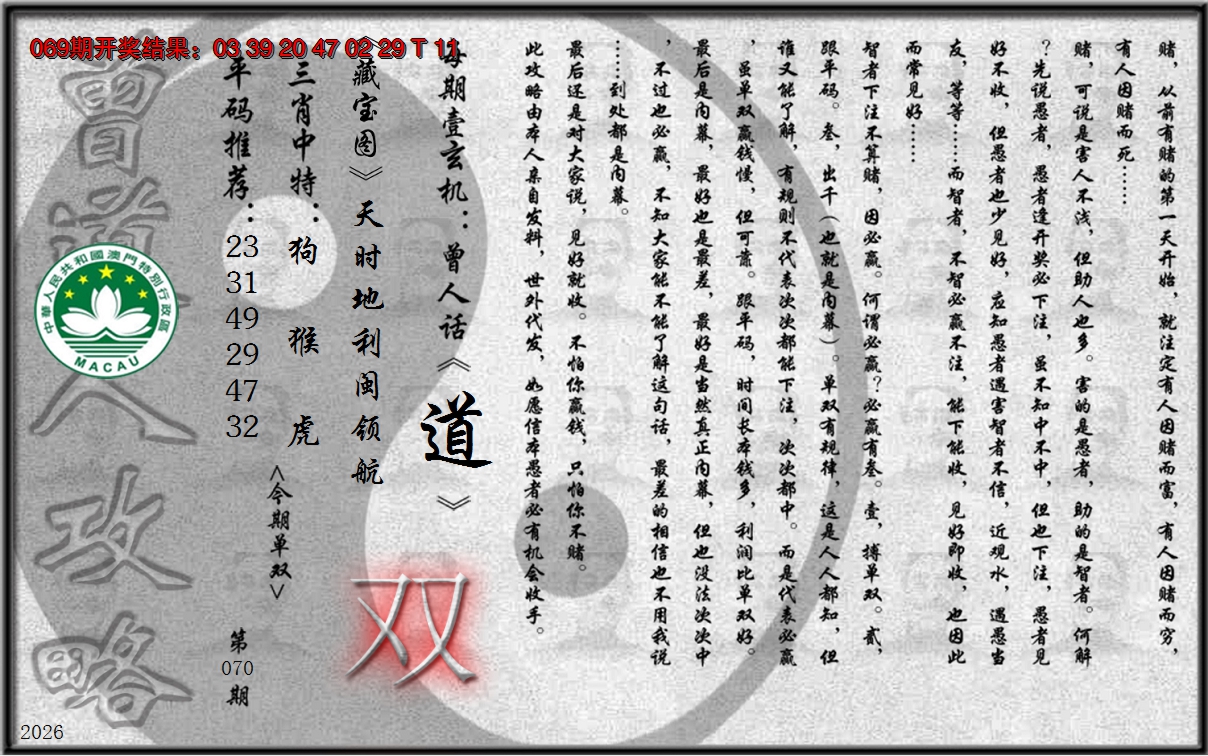 069期开奖结果：03 39 20 47 02 29 T 11
赌，从前有赌的第一天开始，就注定有人因赌而富，有人因赌而穷，
有人因赌而死……
赌，可说是害人不浅，但助人也多。害的是愚者，助的是智者。何解
？先说愚者，愚者逢开奖必下注，虽不知中不中，但也下注，愚者见
好不收，但愚者也少见好，应知愚者遇害智者不信，近观水，遇愚当
友，等等……而智者，不智必赢不注，能下能收，见好即收，也因此
而常见好……
智者下注不算赌，因必赢。何谓必赢？必赢有叁。壹，搏单双。贰，
跟平码。叁，出千（也就是内幕）。单双有规律，这是人人都知，但
谁又能了解，有规则不代表次次都能下注，次次都中。而是代表必赢
，虽单双赢钱慢，但可靠。跟平码，时间长本钱多，利润比单双好。
最后是内幕，最好也是最差，最好是当然真正内幕，但也没法次次中
，不过也必赢，不知大家能不能了解这句话，最差的相信也不用我说
……到处都是内幕。
最后还是对大家说，见好就收。不怕你赢钱，只怕你不赌。
此攻略由本人亲自发料，世外代发，如愿信本愚者必有机会收手。
每期壹玄机：曾人话《道》
《藏宝图》天时地利闽领航
双
三肖中特：狗 猴 虎
<今期单双>
平码推荐：23 31 49 29 47 32
第070期
曾道人攻略
中華人民共和國澳門特別行政區
MACAU
2026